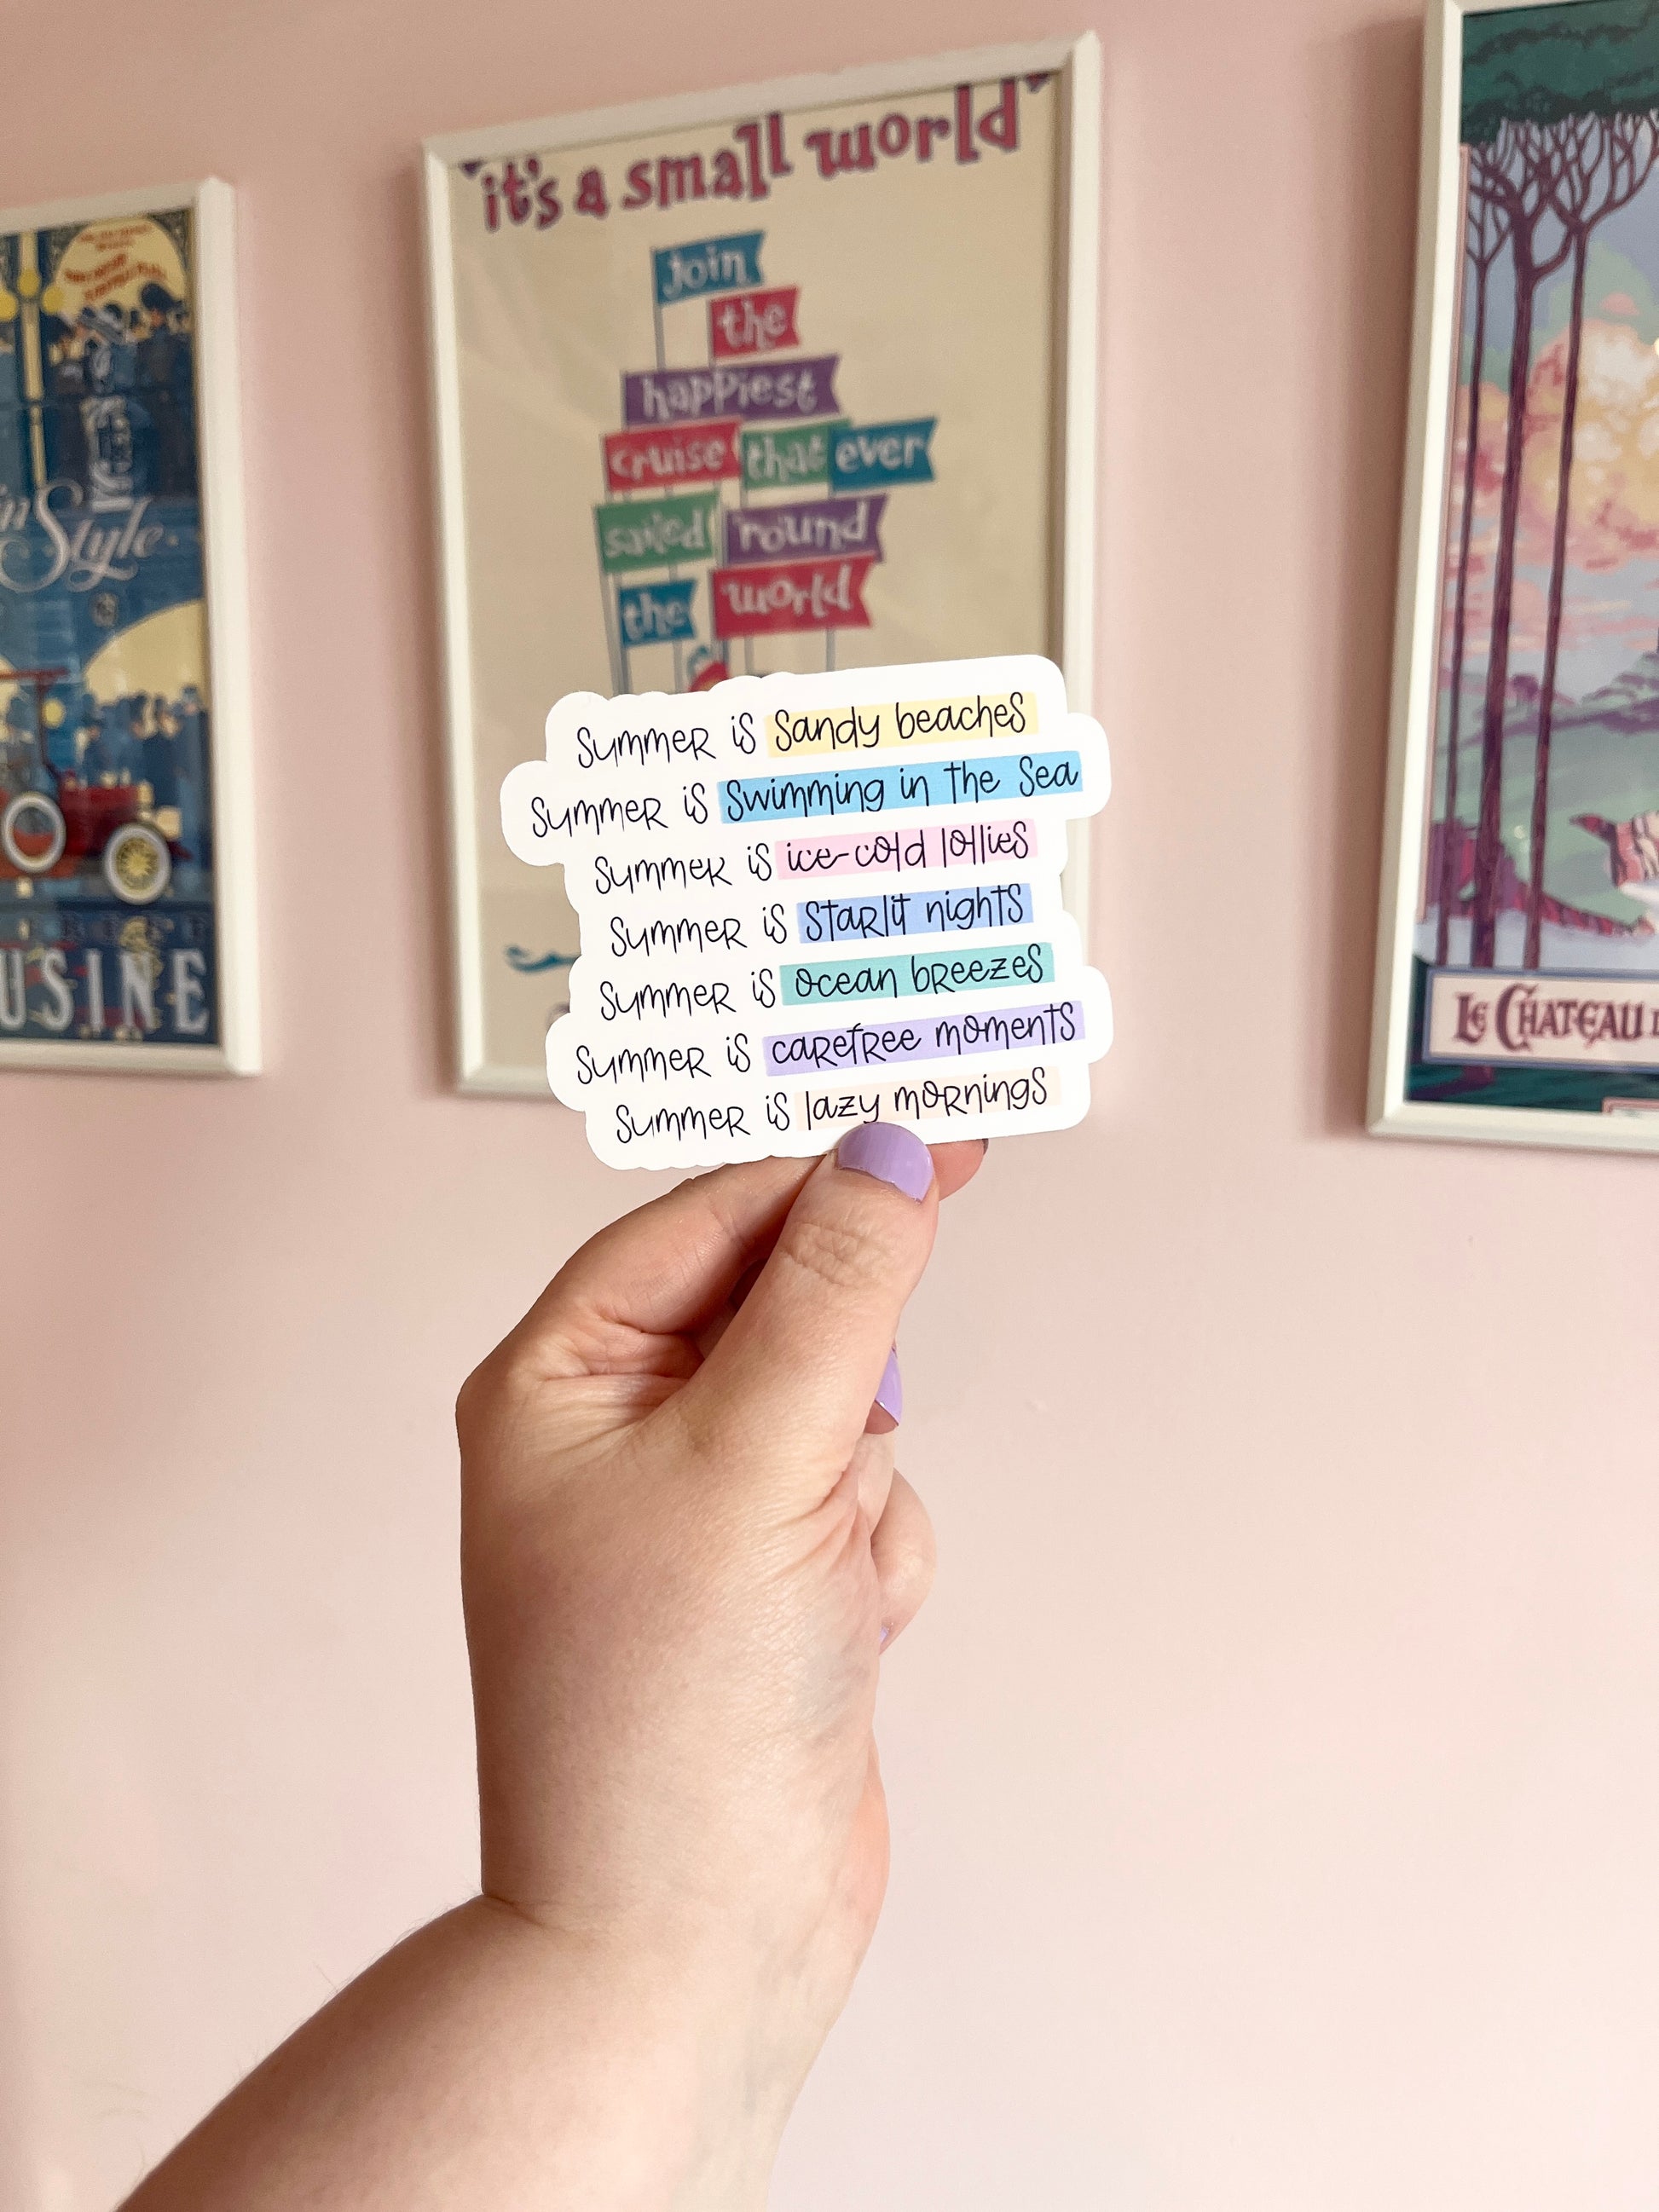 "it's a small world"
join
the
happiest
cruise that ever
sailed 'round
the world
in Style
USINE
LE CHATEAU
Summer is Sandy beaches
Summer is Swimming in the Sea
Summer is ice-cold lollies
Summer is starlit nights
Summer is ocean breezes
Summer is carefree moments
Summer is lazy mornings